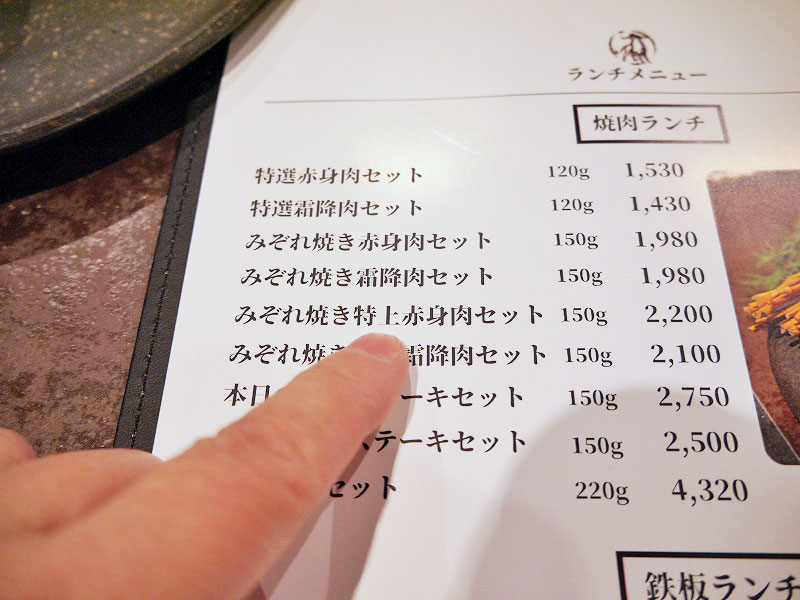 ランチメニュー
焼肉ランチ
特選赤身肉セット 120g 1,530
特選霜降肉セット 120g 1,430
みぞれ焼き赤身肉セット 150g 1,980
みぞれ焼き霜降肉セット 150g 1,980
みぞれ焼き特上赤身肉セット 150g 2,200
みぞれ焼 霜降肉セット 150g 2,100
本日 ーキセット 150g 2,750
テーキセット 150g 2,500
セット 220g 4,320
鉄板ランチ